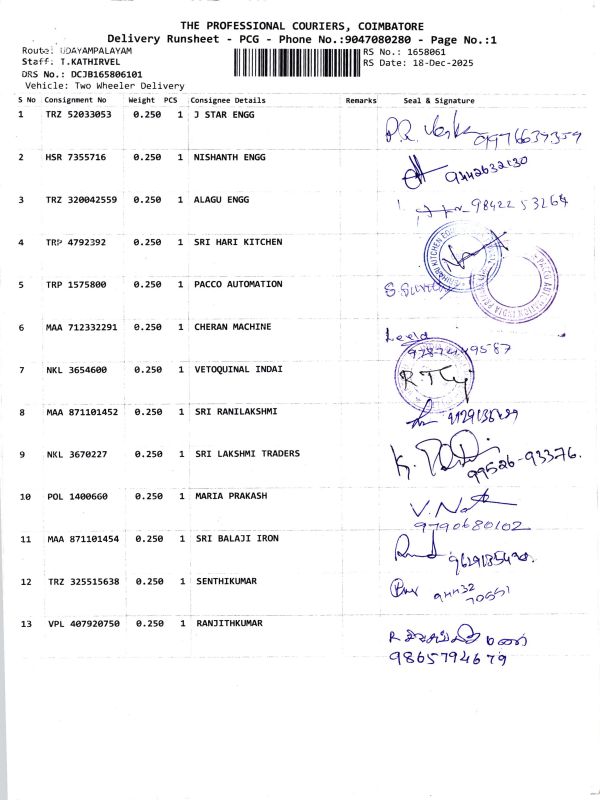 THE PROFESSIONAL COURIERS, COIMBATORE
Delivery Runsheet - PCG - Phone No.:9047080280 - Page No.:1
Route: UDAYAMPALAYAM RS No.: 1658061
Staff: T.KATHIRVEL RS Date: 18-Dec-2025
DRS No.: DCJB165806101
Vehicle: Two Wheeler Delivery
S No Consignment No Weight PCS Consignee Details Remarks Seal & Signature
1 TRZ 52033053 0.250 1 J STAR ENGG
2 HSR 7355716 0.250 1 NISHANTH ENGG 9442632130
3 TRZ 320042559 0.250 1 ALAGU ENGG 98422 53264
4 TRP 4792392 0.250 1 SRI HARI KITCHEN
5 TRP 1575800 0.250 1 PACCO AUTOMATION
6 MAA 712332291 0.250 1 CHERAN MACHINE Leela
7 NKL 3654600 0.250 1 VETOQUINAL INDAI
8 MAA 871101452 0.250 1 SRI RANILAKSHMI
9 NKL 3670227 0.250 1 SRI LAKSHMI TRADERS 99526-93376.
10 POL 1400660 0.250 1 MARIA PRAKASH
9790680102
11 MAA 871101454 0.250 1 SRI BALAJI IRON
12 TRZ 325515638 0.250 1 SENTHIKUMAR 94432
70551
13 VPL 407920750 0.250 1 RANJITHKUMAR
9865794679